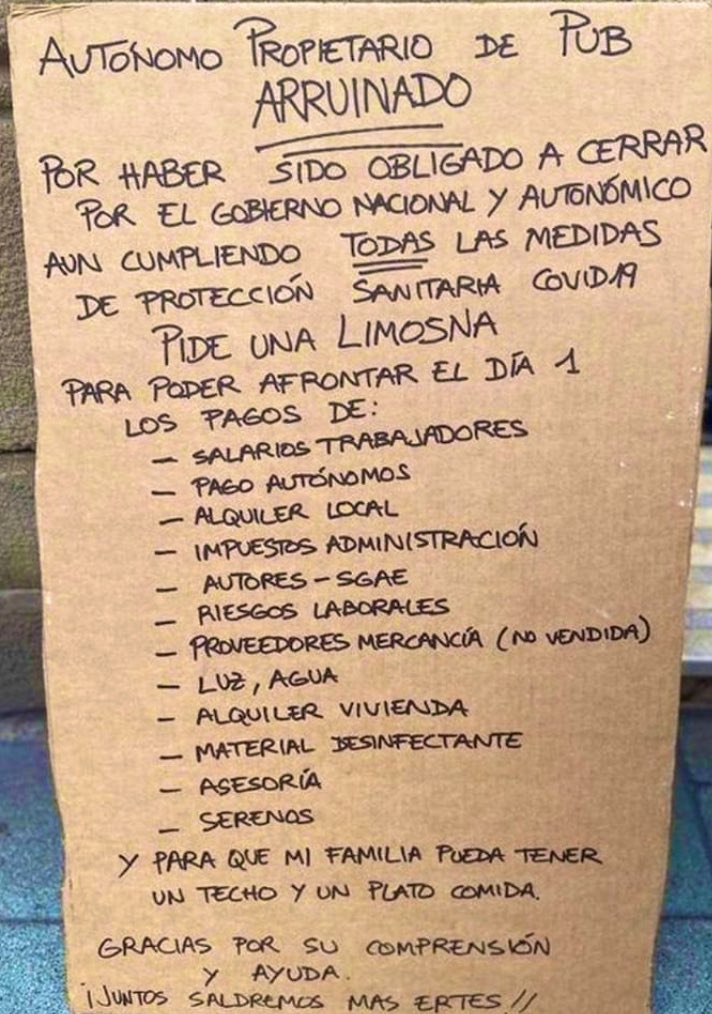 AUTÓNOMO PROPIETARIO DE PUB
ARRUINADO
POR HABER SIDO OBLIGADO A CERRAR
POR EL GOBIERNO NACIONAL Y AUTONÓMICO
AUN CUMPLIENDO TODAS LAS MEDIDAS
DE PROTECCIÓN SANITARIA COVID19
PIDE UNA LIMOSNA
PARA PODER AFRONTAR EL DÍA 1
LOS PAGOS DE:
- SALARIOS TRABAJADORES
- PAGO AUTÓNOMOS
- ALQUILER LOCAL
- IMPUESTOS ADMINISTRACIÓN
- AUTORES - SGAE
- RIESGOS LABORALES
- PROVEEDORES MERCANCÍA (NO VENDIDA)
- LUZ, AGUA
- ALQUILER VIVIENDA
- MATERIAL DESINFECTANTE
- ASESORÍA
- SERENOS
Y PARA QUE MI FAMILIA PUEDA TENER
UN TECHO Y UN PLATO COMIDA.
GRACIAS POR SU COMPRENSIÓN
Y AYUDA.
¡JUNTOS SALDREMOS MAS ERTES!!